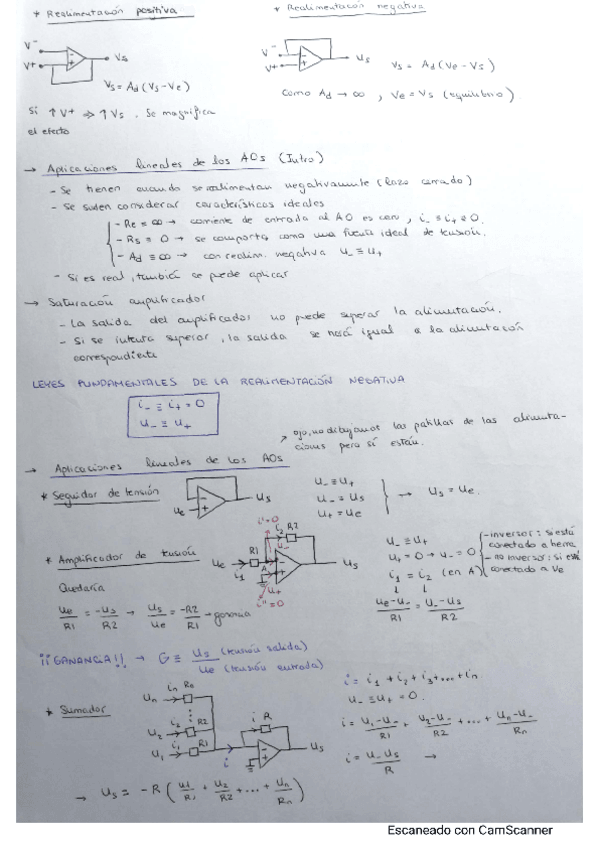 * Realimentación positiva
* Realimentación negativa
V-
V+
Vs
Vs = Ad (Vs - Ve)
V-
V+
us
Vs = Ad (Ve - Vs)
Como Ad → ∞ , Ve = Vs (equilibrio)
Si ↑V+ ⇒ ↑Vs. Se magnifica
el efecto
→ Aplicaciones lineales de los AOs (Intro)
- Se tienen cuando se realimentan negativamente (lazo cerrado)
- Se suelen considerar características ideales
- Re = ∞ → corriente de entrada al AO es cero, i- ≡ i+ ≡ 0.
- Rs = 0 → se comporta como una fuente ideal de tensión.
- Ad ≡ ∞ → con realim. negativa u- ≡ u+
- Si es real, también se puede aplicar
→ Saturación amplificador
- La salida del amplificador no puede superar la alimentación.
- Si se intenta superar, la salida se hará igual a la alimentación
correspondiente
LEYES FUNDAMENTALES DE LA REALIMENTACIÓN NEGATIVA
i- ≡ i+ = 0
u- ≡ u+
ojo, no dibujamos las patillas de las alimenta-
ciones pero sí están.
→ Aplicaciones lineales de los AOs
* Seguidor de tensión
ue
us
u- ≡ u+
u- = us
u+ = ue
→ us = ue.
* Amplificador de tensión
ue
R1
i1
i'=0
i2
R2
u-
A
u+
i''=0
us
u- ≡ u+
u+ = 0 → u- = 0
- inversor: si está
conectado a tierra
- no inversor: si está
conectado a Ve
i1 = i2 (en A)
ue-u-/R1 = u--us/R2
Quedaría
ue/R1 = -us/R2 → us/ue = -R2/R1 → ganancia
¡¡GANANCIA!! → G ≡ us (tensión salida)/ue (tensión entrada)
* Sumador
un
in
i2
R2
u2
i1
R1
u1
i
i
R
us
i = i1 + i2 + i3 + ... + in
u- ≡ u+ = 0.
i = u1-u-/R1 + u2-u-/R2 + ... + un-u-/Rn
i = u-us/R →
→ us = -R (u1/R1 + u2/R2 + ... + un/Rn)
Escaneado con CamScanner